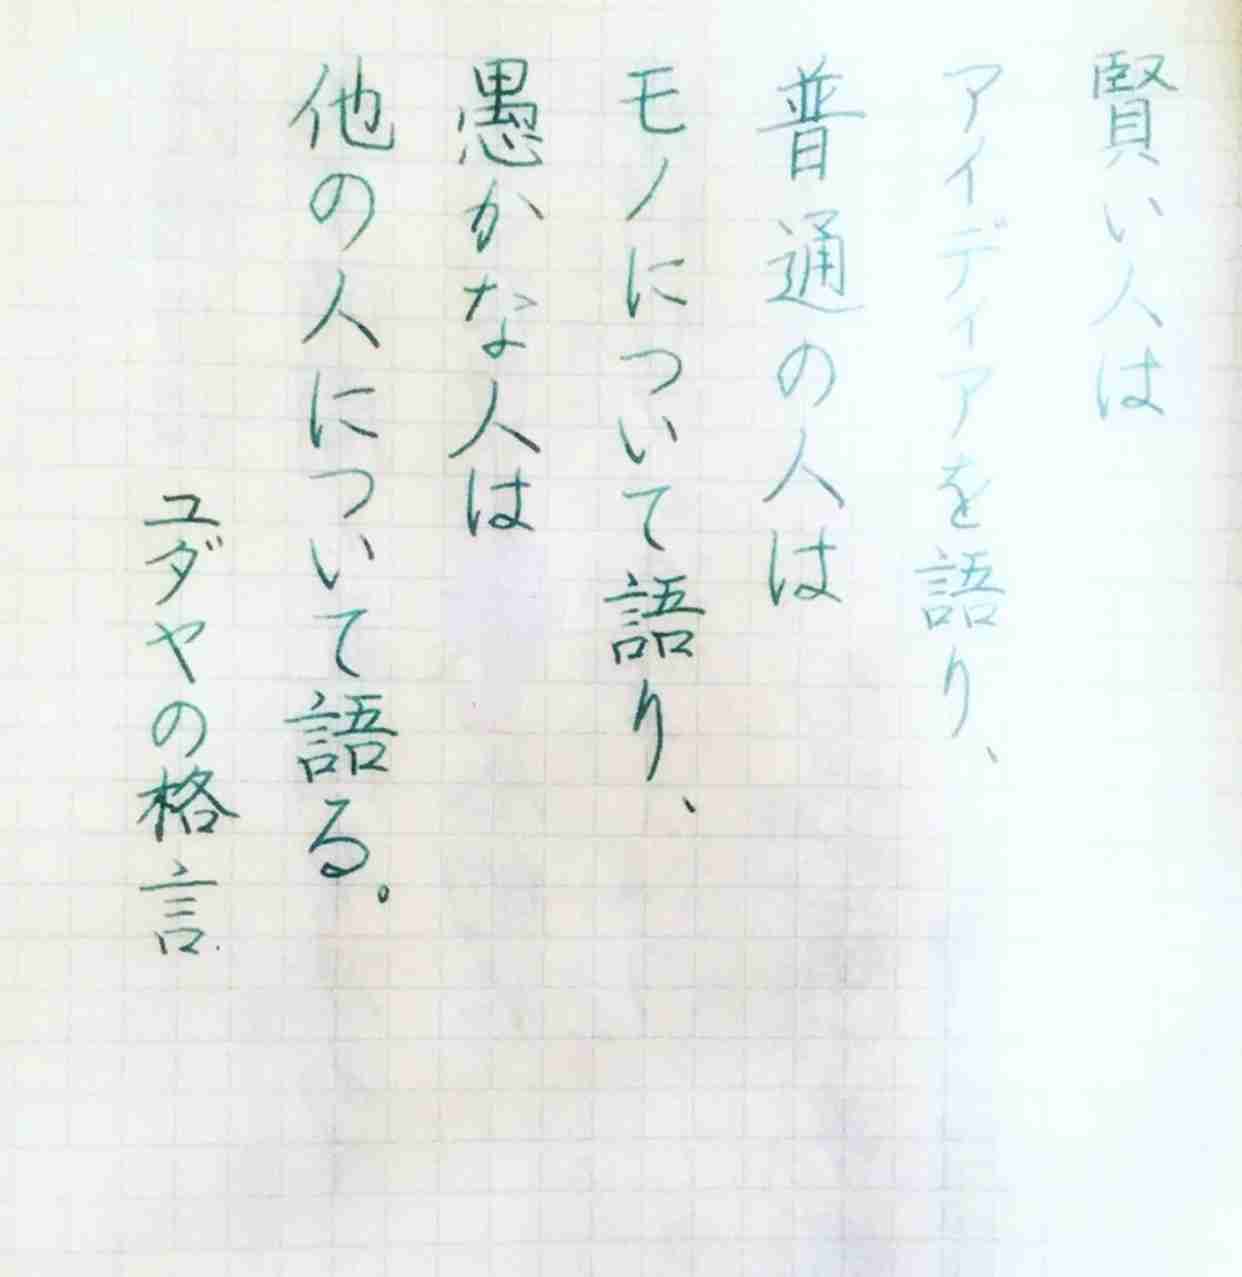 賢い人は
アイディアを語り、
普通の人は
モノについて語り、
愚かな人は
他の人について語る。
ユダヤの格言